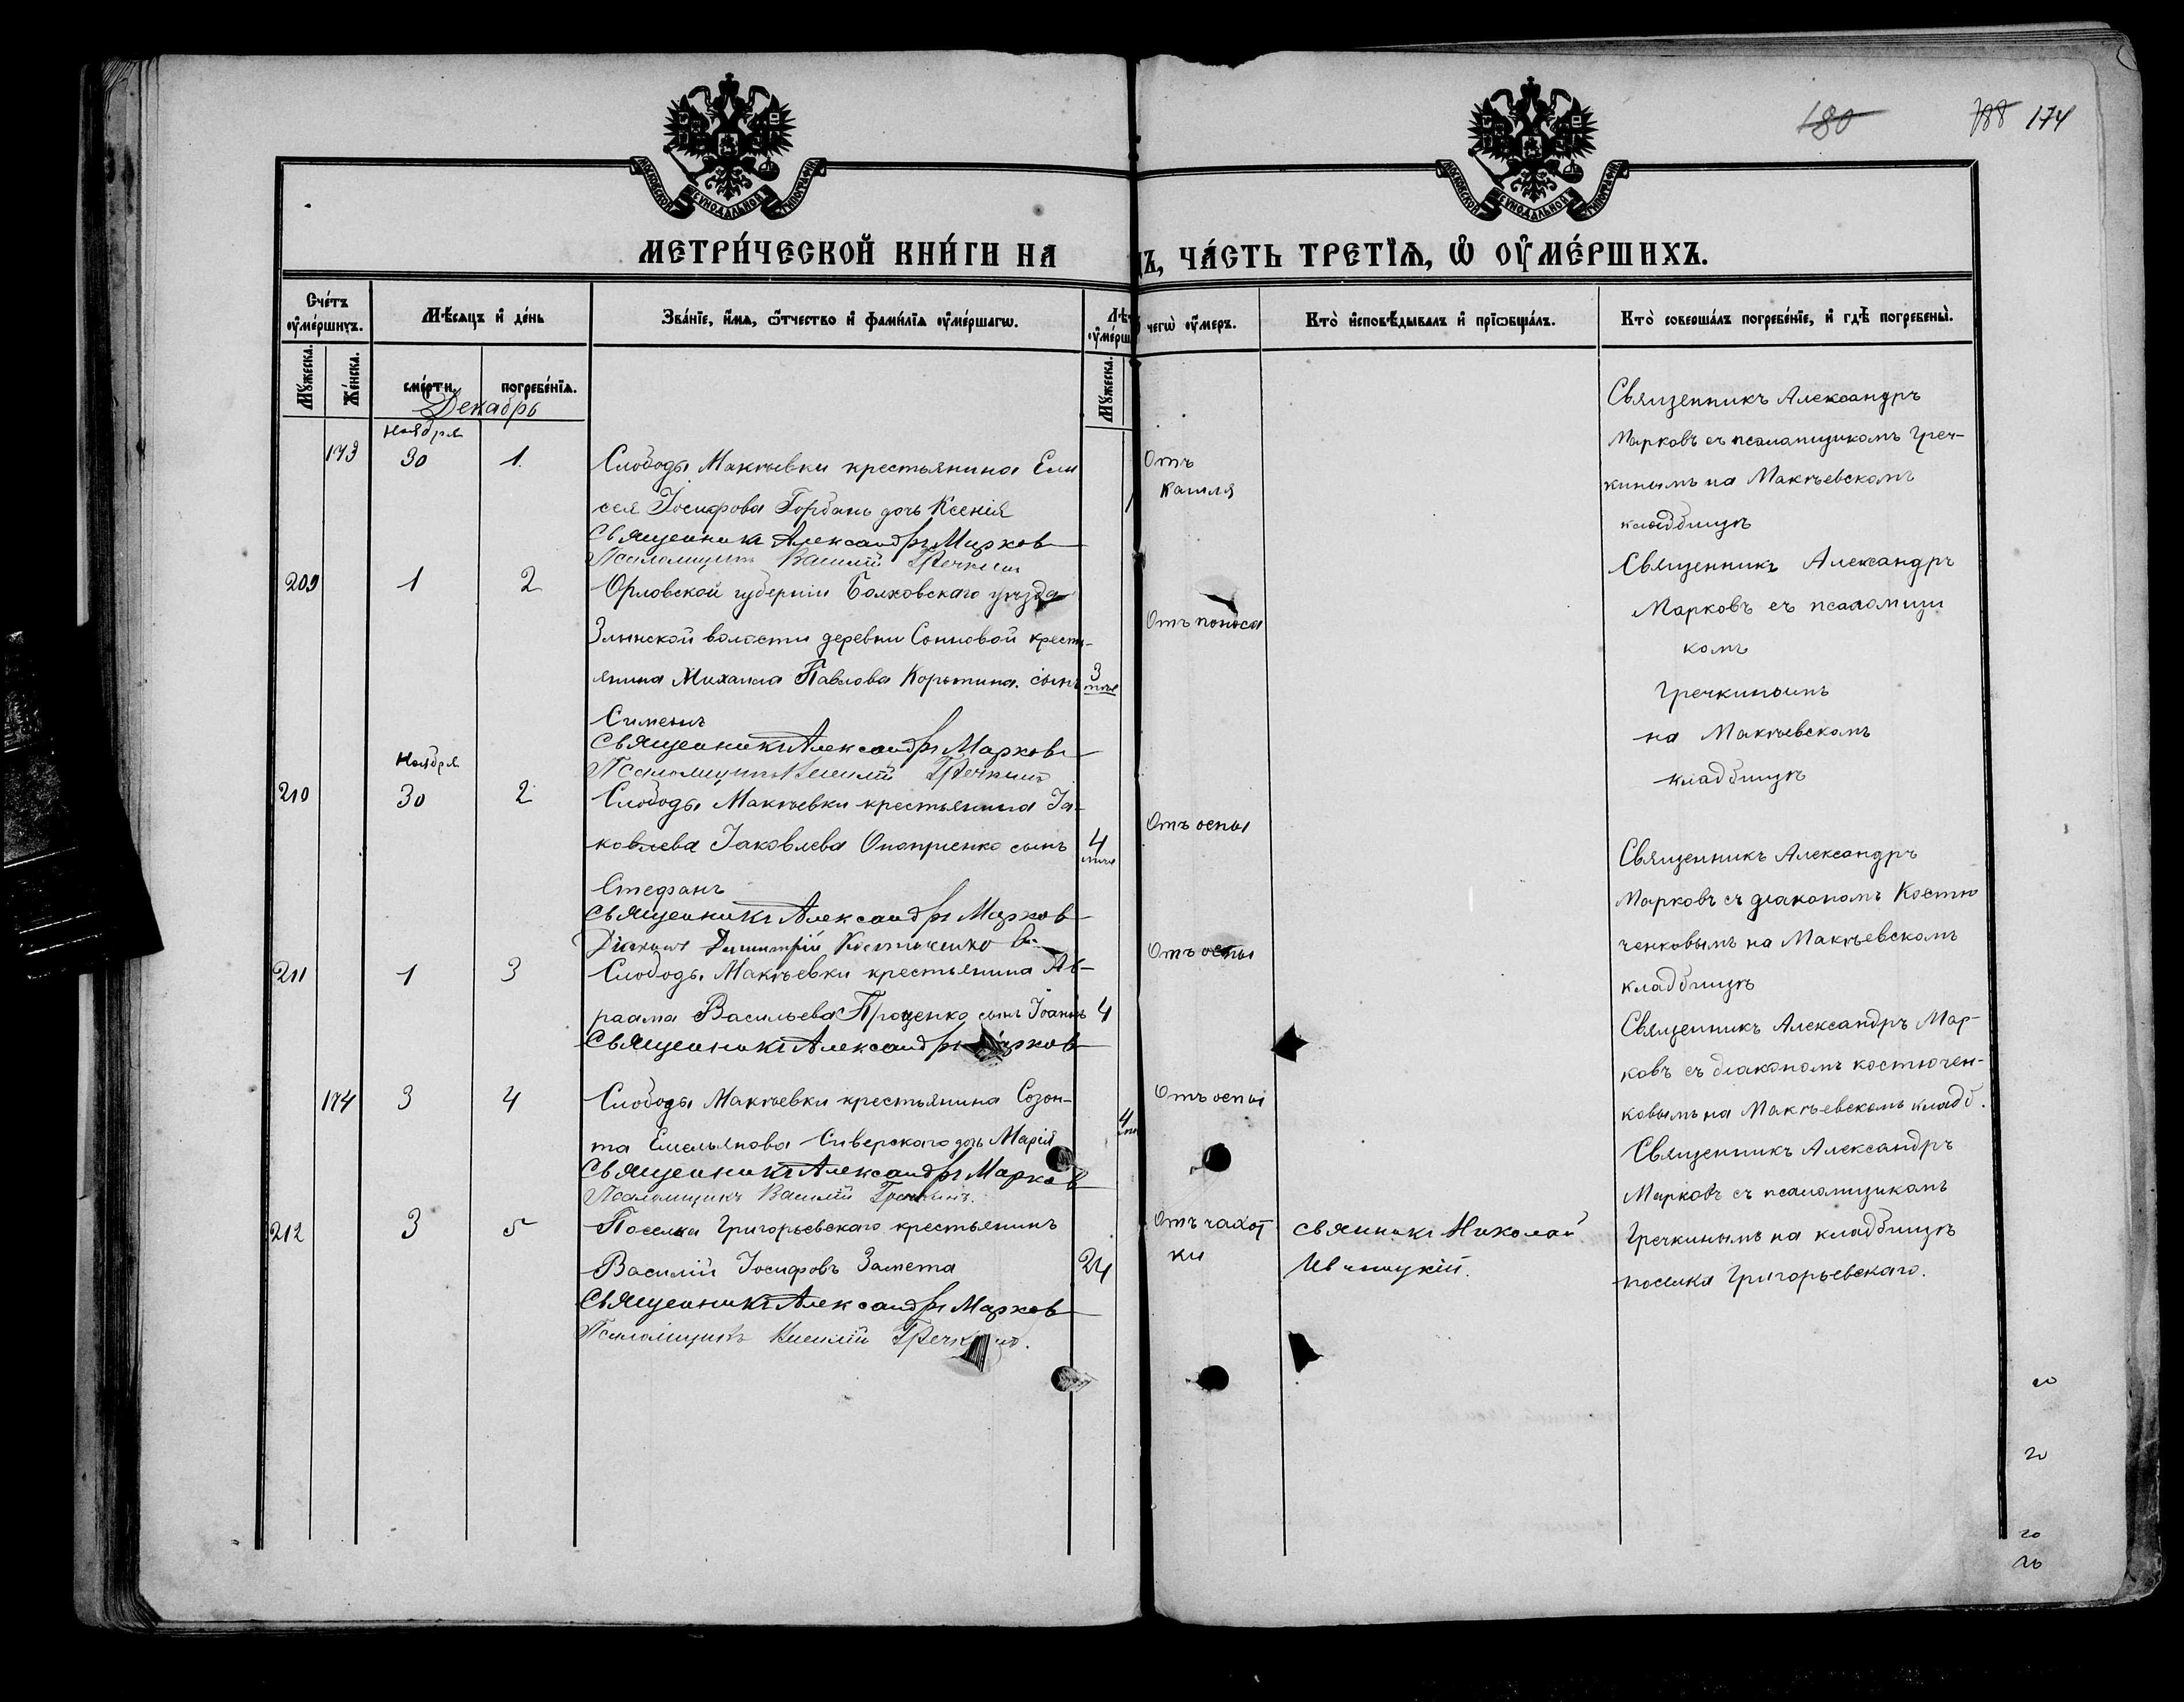 180 188 174
МОСКОВСКОЙ СѴНОДАЛЬНОЙ ТИПОГРАФІИ
МОСКОВСКОЙ СѴНОДАЛЬНОЙ ТИПОГРАФІИ
МЕТРИ́ЧЕСКОЙ КНИ́ГИ НА
Ъ, ЧА́СТЬ ТРЕТЇѦ, Ѡ҆ ОУ҆МЕ́РШИХЪ.
Сче́тъ оу҆ме́ршихъ.
Мѣ́сѧцъ и҆ де́нь
Зва́нїе, и҆́мѧ, ѻ҆́тчество и҆ фами́лїѧ оу҆ме́ршагѡ.
Лѣ́т
оу҆ме́рш
чегѡ̀ оу҆́меръ.
Кто̀ и҆сповѣ́дывалъ и҆ прїѡбща́лъ.
Кто̀ соверша́лъ погребе́нїе, и҆ гдѣ̀ погребены̀.
Мꙋ́жеска.
Же́нска.
сме́рти.
погребе́нїѧ.
Мꙋ́жеска.
Декабрь
Ноября
173 30 1.
Слободы Макѣевки крестьянина Ели
сея Іосифова Горбань дочь Ксенія
Священникъ Александръ Марковъ
Псаломщикъ Василій Гречкинъ
1
Отъ
кашля
Священникъ Александръ
Марковъ съ псаломщикомъ Греч-
кинымъ на Макѣевскомъ
кладбищѣ
209 1 2
Орловской губерніи Болховскаго уѣзда
Злынской волости деревни Сомовой крестъ-
янина Михаила Павлова Корытина. сынъ
Симеонъ
Священникъ Александръ Марковъ
Псаломщикъ Василій Гречкинъ
3
Отъ поноса
Священникъ Александръ
Марковъ съ псаломщи
комъ
Гречкинымъ
на Макѣевскомъ
кладбищѣ
Ноября
210 30 2
Слободы Макѣевки крестьянина Іа-
ковлева Іаковлева Онопріенко сынъ
Стефанъ
Священникъ Александръ Марковъ
Діаконъ Димитрій Костюченко
4
Отъ оспы
Священникъ Александръ
Марковъ съ діакономъ Костю
ченковымъ на Макѣевскомъ
кладбищѣ
211 1 3
Слободы Макѣевки крестьянина Ав-
раама Васильева Проценко сынъ Іоаннъ
Священникъ Александръ Марковъ
4
Отъ оспы
Священникъ Александръ Мар-
ковъ съ діакономъ костючен-
ковымъ на Макѣевскомъ кладб.
174 3 4
Слободы Макѣевки крестьянина Созон-
та Емельянова Сиверскаго дочь Марія
Священникъ Александръ Марковъ
Псаломщикъ Василій Гречкинъ.
4
Отъ оспы
Священникъ Александръ
Марковъ съ псаломщикомъ
Гречкинымъ на кладбищѣ
поселка Григорьевскаго.
212 3 5
Поселка Григорьевскаго крестьянинъ
Василій Іосифовъ Замета
Священникъ Александръ Марковъ
Псаломщикъ Василій Гречкинъ.
24
Отъ чахот
ки
свянникъ Николай
20
20
20